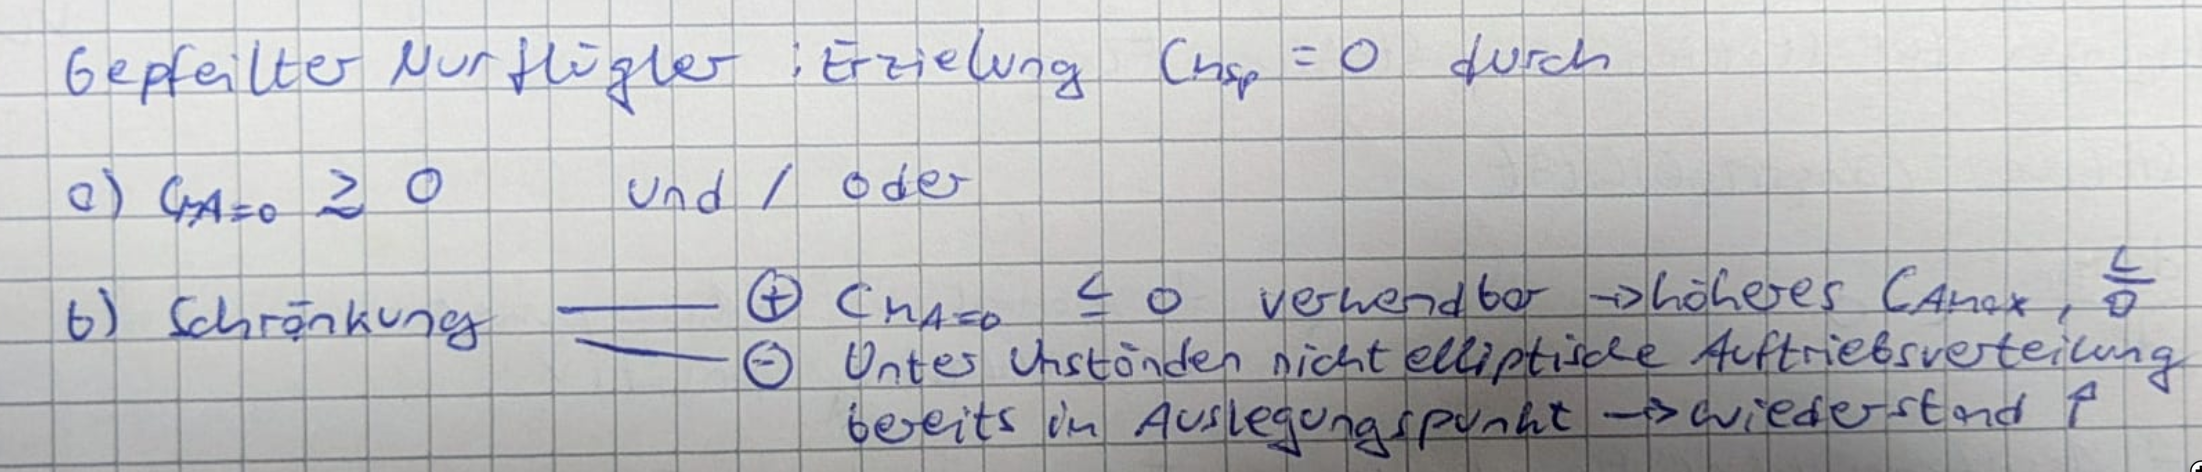 Gepfeilter Nurflügler : Erzielung Cmsp = 0 durch
a) CmA=0 ≳ 0 und / oder
b) Schränkung — ⊕ CmA=0 ≤ 0 verwendbar → höheres CAmax, L/D
— ⊖ Unter Umständen nicht elliptische Auftriebsverteilung
bereits im Auslegungspunkt → wiederstand ↑